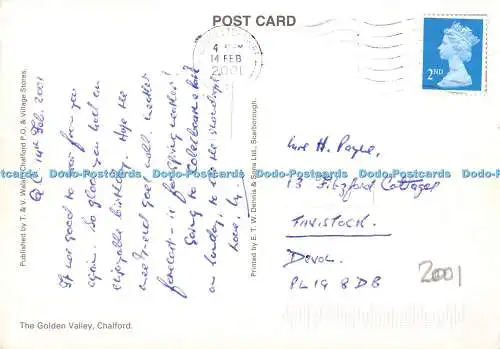 POST CARD
4 PM
14 FEB
2001
2ND
Published by T. & V. Walsh, Chalford P.O. & Village Stores.
14th Feb. 2001
It was good to hear from you
again. So glad you had an
enjoyable birthday. Hope the
weekend goes well. Weather
forecast is for spring weather!
Going to Colesbourne
on Sunday, to see the snowdrops
Love
Printed by E. T. W. Dennis & Sons Ltd., Scarborough.
H. Payne,
13 Fitzford Cottages
TAVISTOCK.
DEVON.
PL19 8DB
2001
The Golden Valley, Chalford.